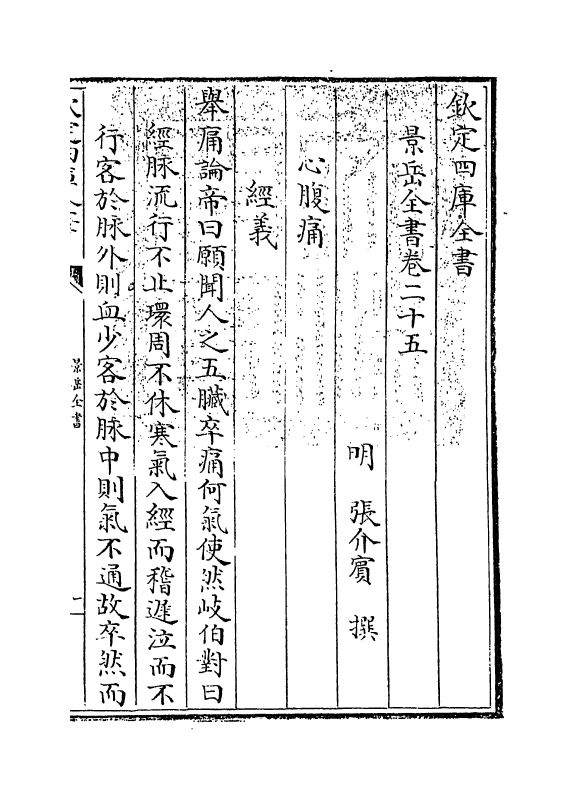 欽定四庫全書
景岳全書卷二十五
明 張介賓 撰
心腹痛
經義
舉痛論帝曰願聞人之五臟卒痛何氣使然岐伯對曰
經脉流行不止環周不休寒氣入經而稽遲泣而不
行客於脉外則血少客於脉中則氣不通故卒然而
景岳全書